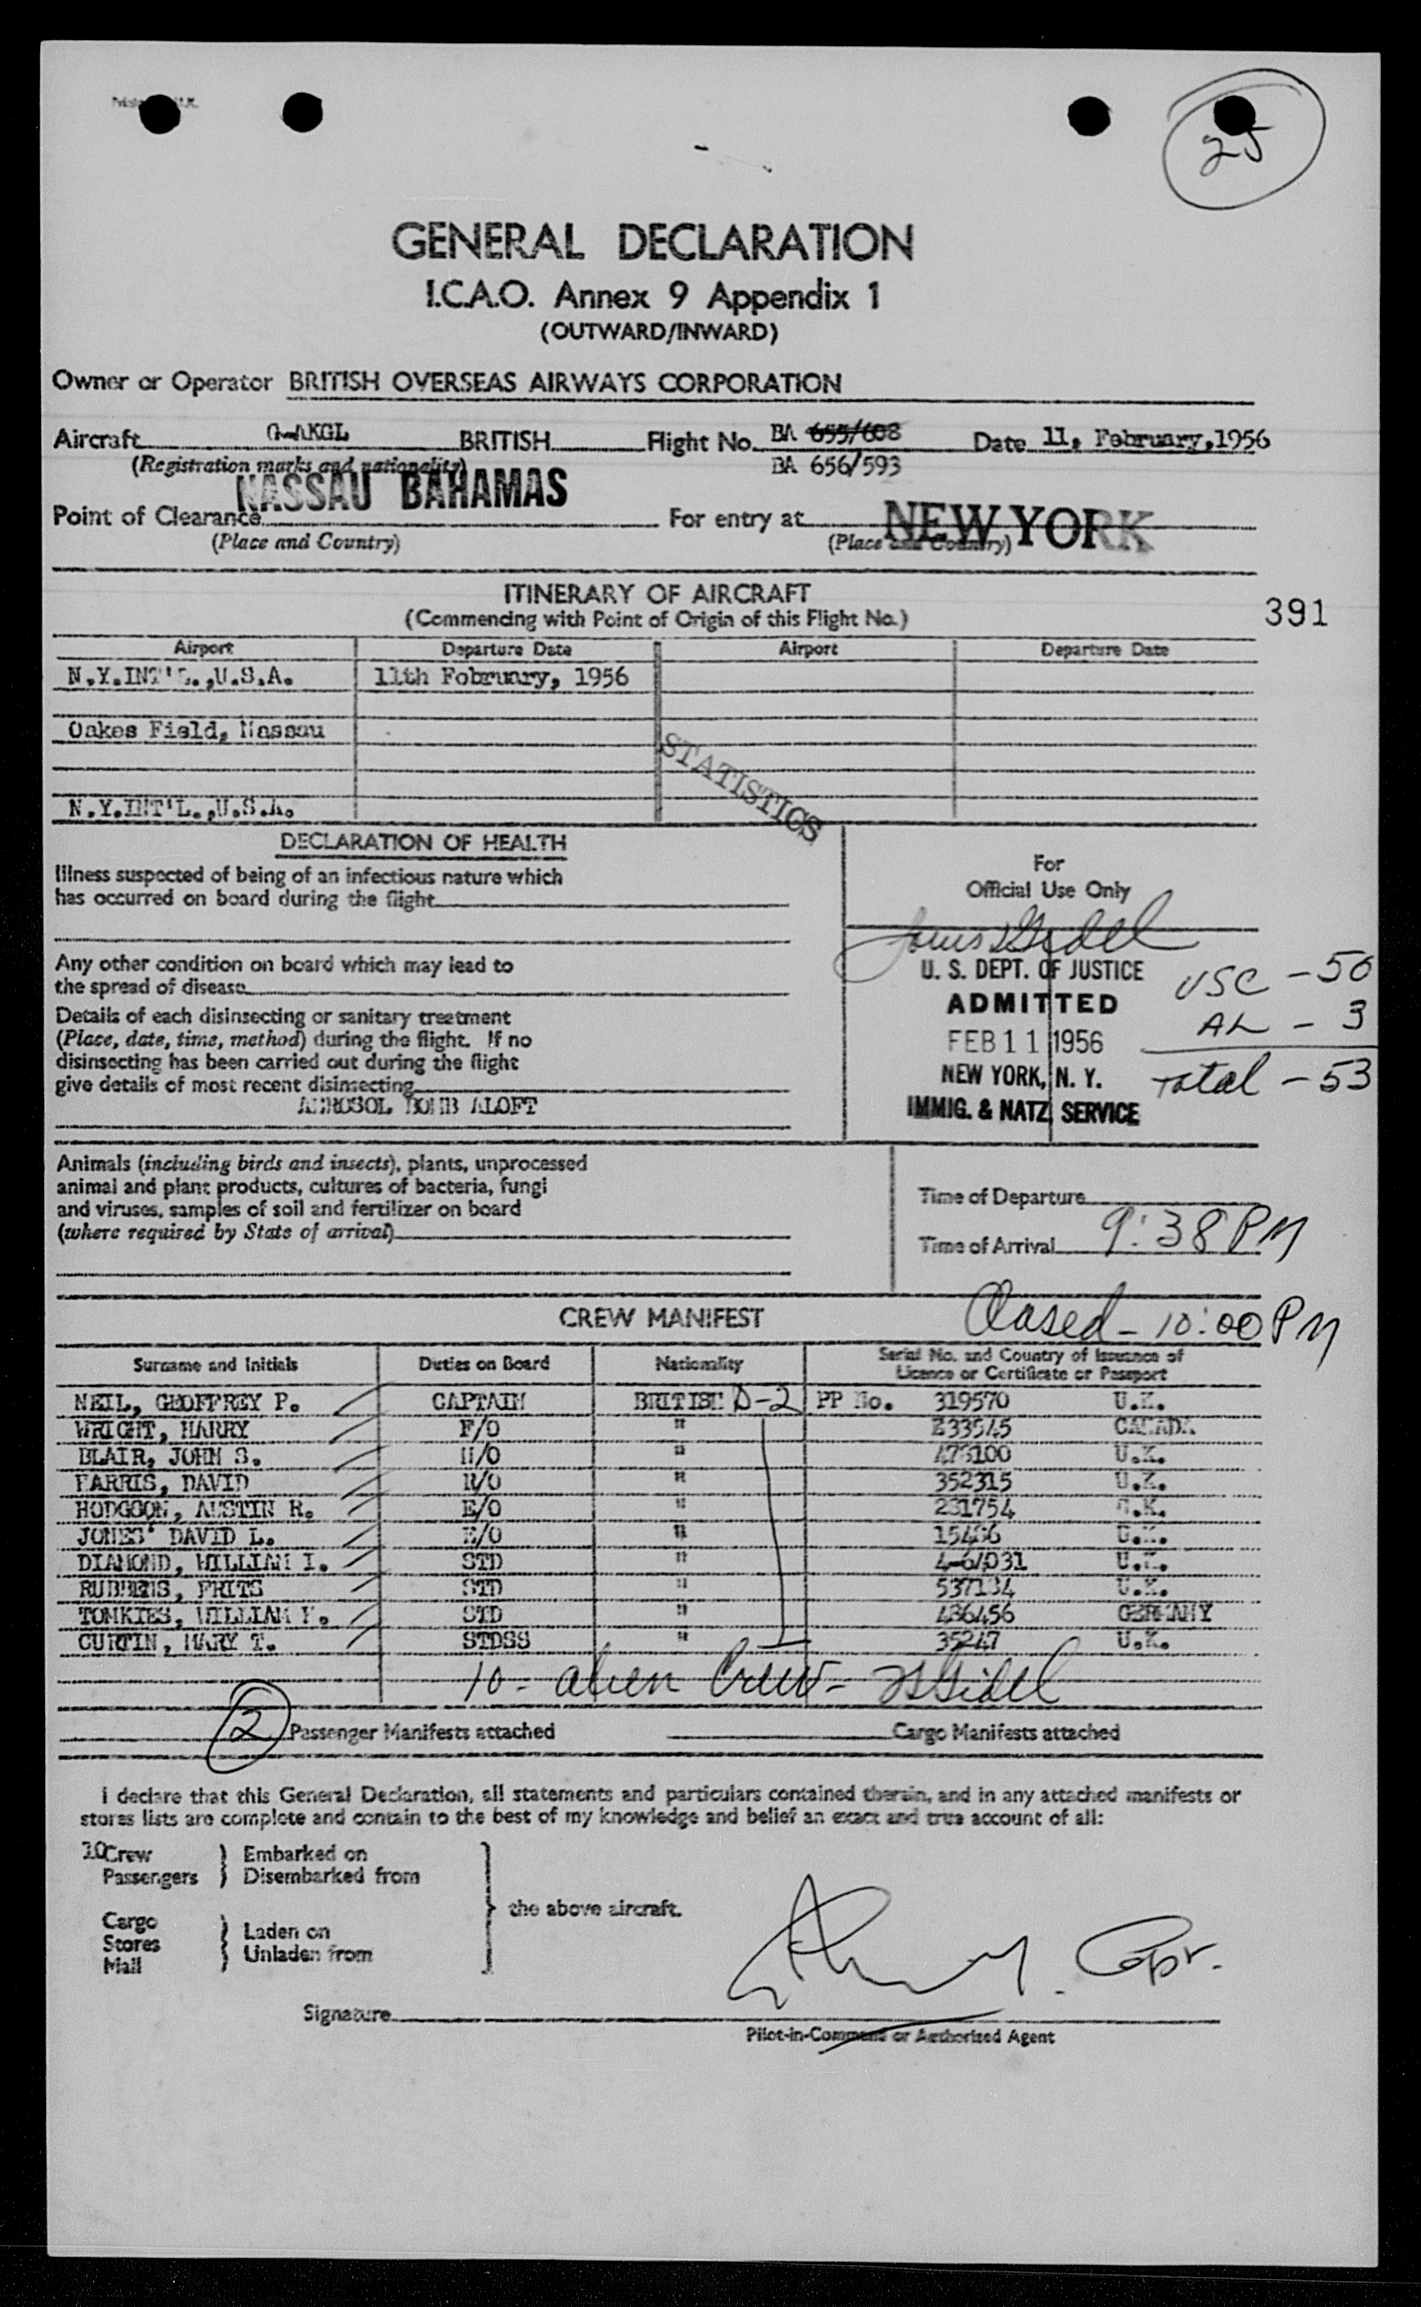 25
GENERAL DECLARATION
I.C.A.O. Annex 9 Appendix 1
(OUTWARD/INWARD)
Owner or Operator BRITISH OVERSEAS AIRWAYS CORPORATION
Aircraft G-AKGL BRITISH Flight No. BA 655/608 Date 11, February, 1956
(Registration marks and nationality) BA 656/593
NASSAU BAHAMAS
Point of Clearance For entry at NEW YORK
(Place and Country) (Place and Country)
ITINERARY OF AIRCRAFT
(Commencing with Point of Origin of this Flight No.) 391
Airport Departure Date Airport Departure Date
N.Y.INT'L.,U.S.A. 11th February, 1956
Oakes Field, Nassau
STATISTICS
N.Y.INT'L.,U.S.A.
DECLARATION OF HEALTH
Illness suspected of being of an infectious nature which
has occurred on board during the flight
Any other condition on board which may lead to
the spread of disease
Details of each disinsecting or sanitary treatment
(Place, date, time, method) during the flight. If no
disinsecting has been carried out during the flight
give details of most recent disinsecting
AEROSOL BOMB ALOFT
For
Official Use Only
U. S. DEPT. OF JUSTICE
ADMITTED
FEB 11 1956
NEW YORK, N. Y.
IMMIG. & NATZ SERVICE
USC - 50
AL - 3
Total - 53
Animals (including birds and insects), plants, unprocessed
animal and plant products, cultures of bacteria, fungi
and viruses, samples of soil and fertilizer on board
(where required by State of arrival)
Time of Departure
Time of Arrival 9:38 PM
Closed - 10:00 PM
CREW MANIFEST
Surname and Initials Duties on Board Nationality Serial No. and Country of Issuance of
Licence or Certificate or Passport
NEIL, GEOFFREY P. CAPTAIN BRITISH D-2 PP No. 319570 U.K.
WRIGHT, HARRY F/O " CANADA
BLAIR, JOHN S. N/O " U.K.
FARRIS, DAVID R/O " 352315 U.K.
HODGSON, AUSTIN R. E/O " 231754 U.K.
JONES DAVID L. E/O " U.K.
DIAMOND, WILLIAM I. STD " U.K.
RUBBENS, FRITS STD " U.K.
TOMKIES, WILLIAM F. STD " 436456 GERMANY
CURTIN, MARY T. STDSS " 35247 U.K.
10 - alien Crew -
2 Passenger Manifests attached Cargo Manifests attached
I declare that this General Declaration, all statements and particulars contained therein, and in any attached manifests or
stores lists are complete and contain to the best of my knowledge and belief an exact and true account of all:
10 Crew } Embarked on
Passengers } Disembarked from
the above aircraft.
Cargo
Stores } Laden on
Mail } Unladen from
Capt.
Signature
Pilot-in-Command or Authorised Agent